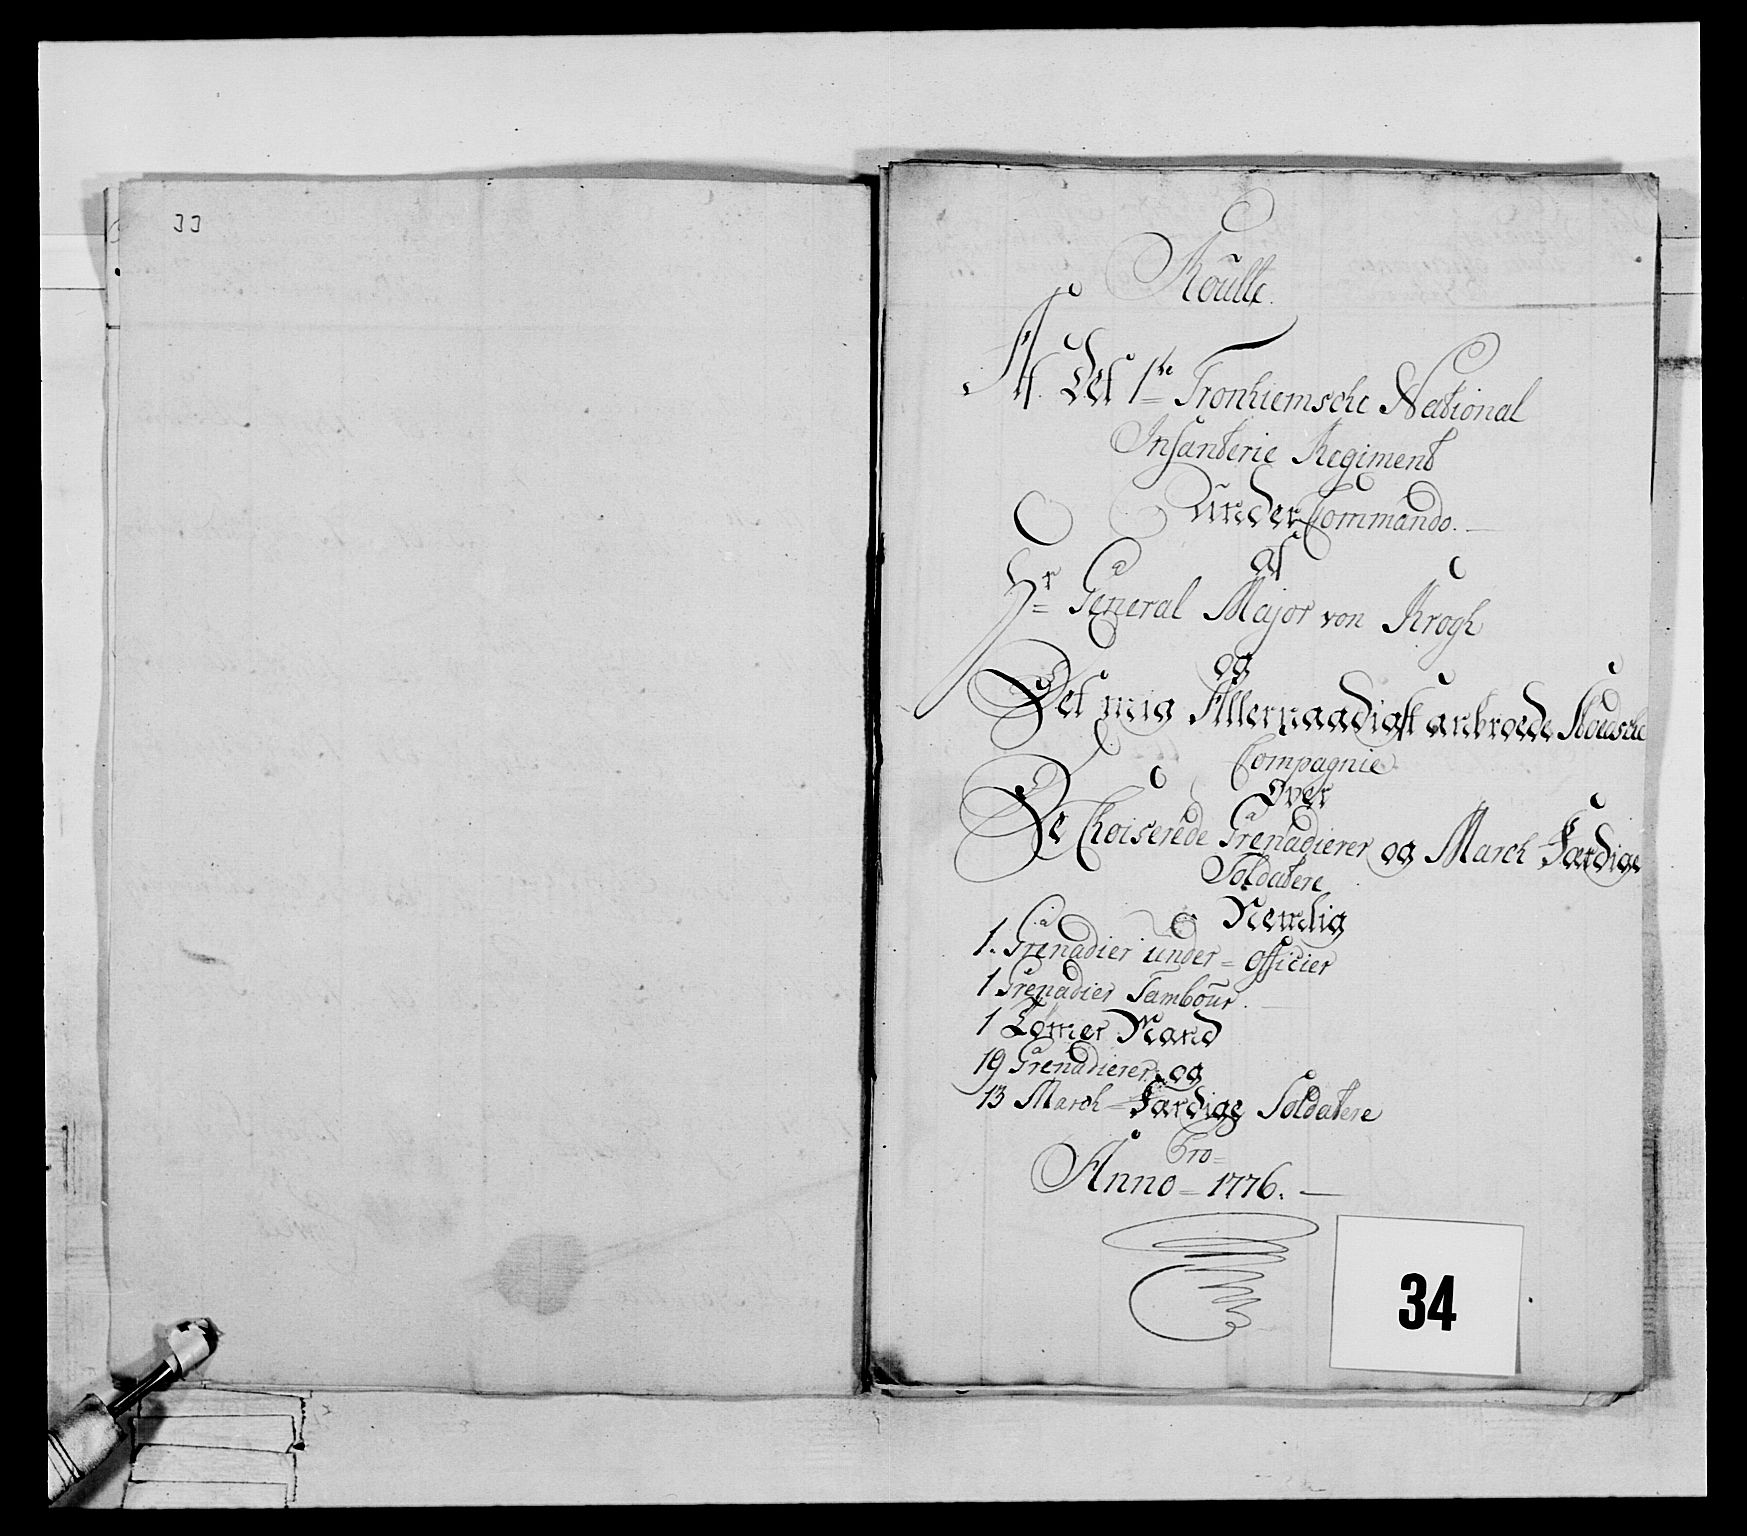 33
Roulle.
Af Det 1ste Tronhiemsche National
Infanterie Regiment
under Commando.
af
Hr General Major von Krogh
og
Det mig Allernaadigst anbroede
Compagnie
Over
De Choiserede Grenadierer og March Færdige
Soldatere
Nemlig
1. Grenadier under-Officier
1 Grenadier Tambour.
1 Tømer Mand
19 Grenadierer og
13 March-Færdige Soldatere
Pro
Anno-1776.
34